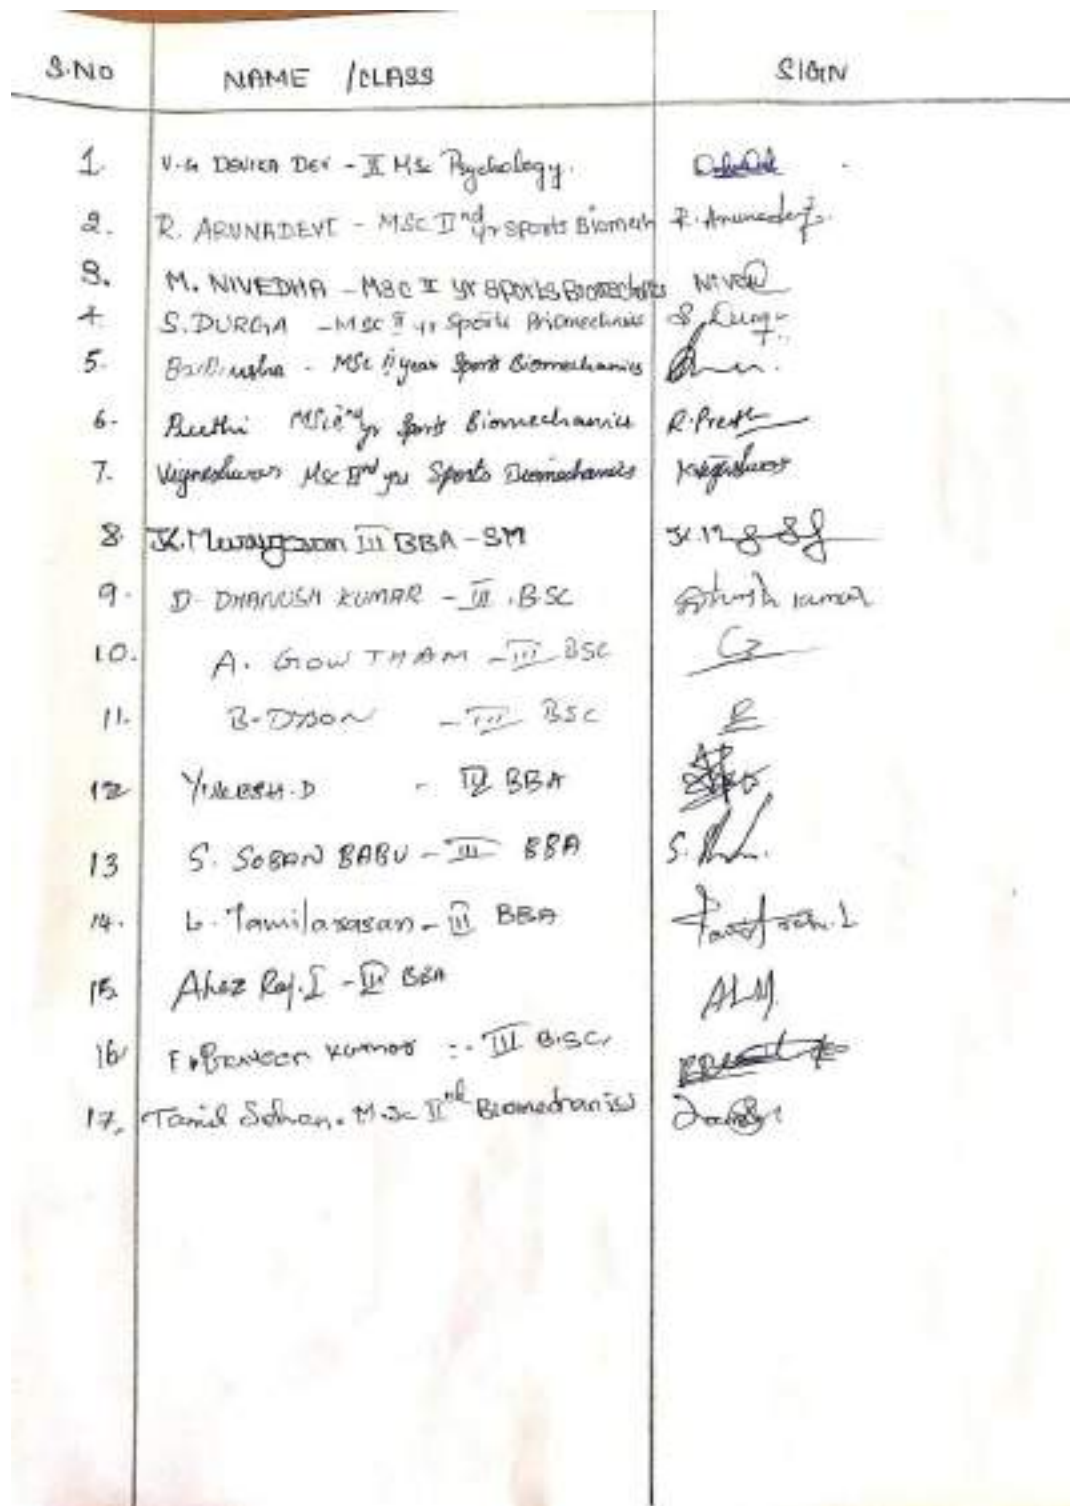 S.NO NAME /CLASS SIGN
1. V.G DEVIKA DEV - II MSc Psychology.
2. R. ARUNADEVI - MSC IInd yr sports Biomech R. Arunadevi
3. M. NIVEDHA - MSC II yr SPORTS Biomechanics NIVEDHA
4. S. DURGA - MSC II yr Sports Biomechanics S. Durga
5. - MSc II year Sports Biomechanics
6. Preethi MSc 2nd yr Sports Biomechanics R. Preethi
7. Vigneshwaran Msc IInd yr Sports Biomechanics
8. K. Murugesan III BBA - SM
9. D. DHANUSH KUMAR - III . BSC Dhanush kumar
10. A. GOWTHAM - III BSC
11. B. DYSON - III BSC
12 D - III BBA
13 S. SOBAN BABU - III BBA S.
14. L. Tamilarasan - III BBA
15. Raj. I - III BBA
16 Praveen Kumar :- III B.SC,
17. Tamil Selvan. M.Sc IInd Biomechanics